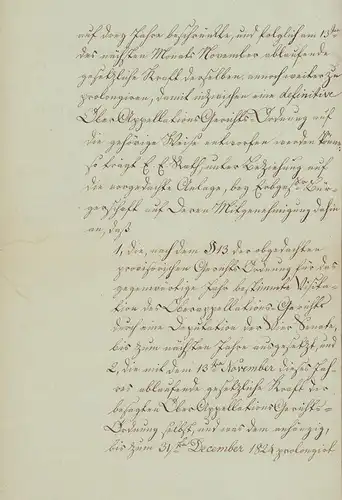 auf drey Jahre beschränkte, und folglich am 13ten
des nächsten Monats November ablaufende
gesetzliche Kraft derselben annoch weiter zu
prolongiren, damit inzwischen eine definitive
Ober Appellations Gerichts-Ordnung auf
die gehörige Weise entworfen werden könne,
so trägt E. E. Rath, unter Beziehung auf
die vorgedachte Anlage, bey Erbges. Bür-
gerschaft auf Deren Mitgenehmigung dahin
an, daß
1, die, nach dem §13 der obgedachten
provisorischen Gerichts Ordnung für das
gegenwärtige Jahr bestimmte Visita-
tion des Oberappellations-Gerichts
durch eine Deputation der Vier Senate,
bis zum nächsten Jahre ausgesetzt, und
2, die mit dem 13ten November dieses Jah-
res ablaufende gesetzliche Kraft der
besagten Ober Appellations Gerichts-
Ordnung selbst, und was dem anhängig,
bis zum 31ten December 1824 prolongirt